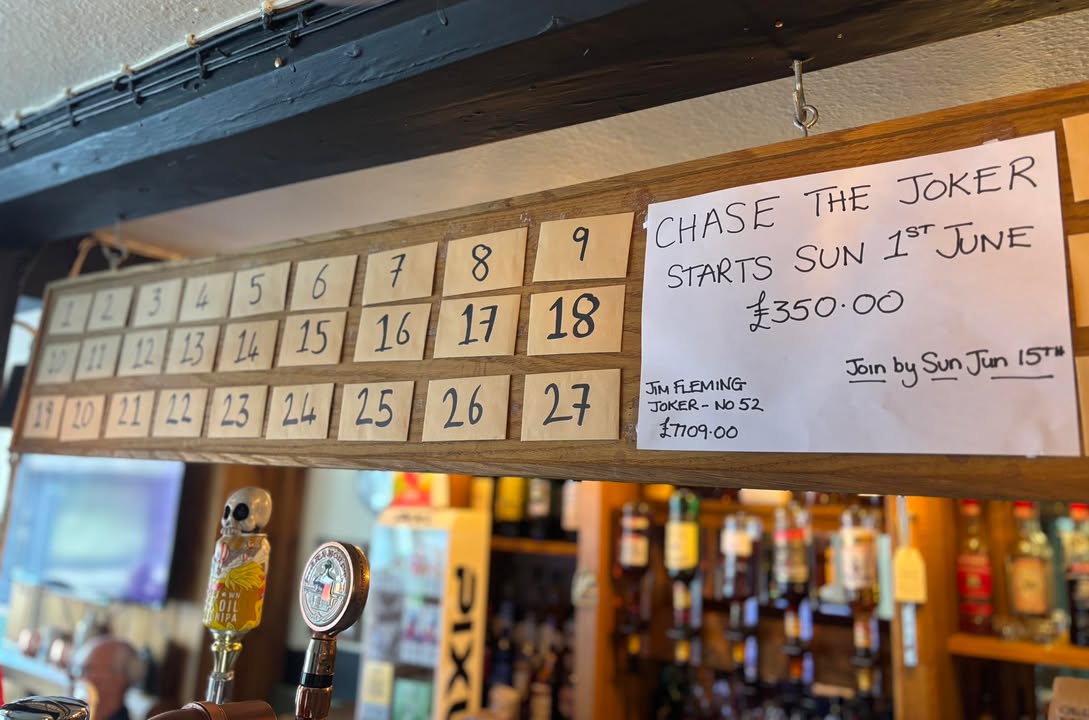 1 2 3 4 5 6 7 8 9
10 11 12 13 14 15 16 17 18
19 20 21 22 23 24 25 26 27
CHASE THE JOKER
STARTS SUN 1ST JUNE
£350.00
Join by Sun Jun 15TH
JIM FLEMING
JOKER - NO 52
£7709.00
OIL